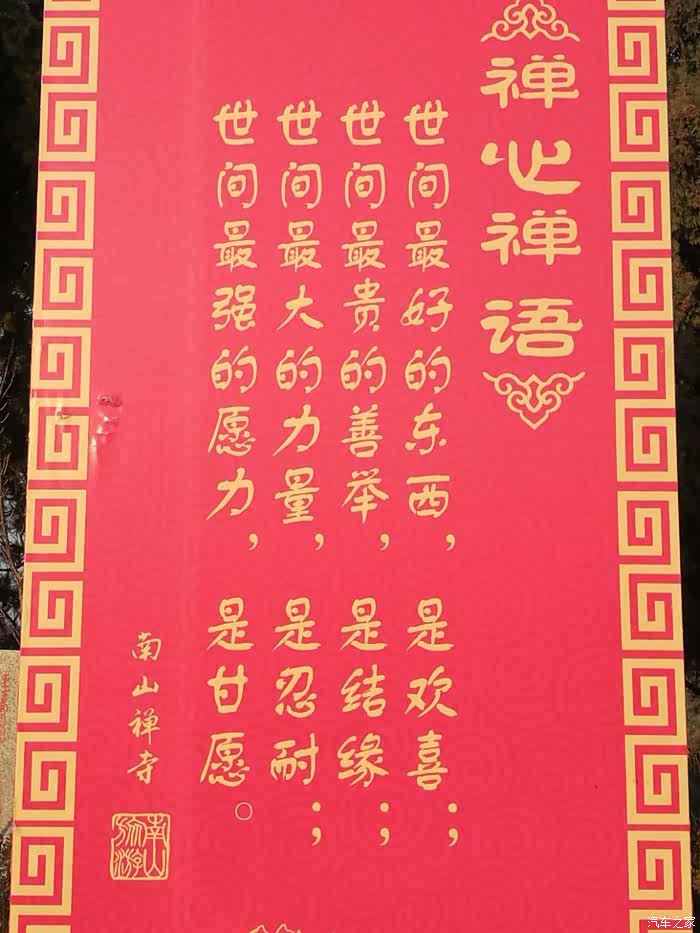 禅心禅语
世间最好的东西，是欢喜；
世间最贵的善举，是结缘；
世间最大的力量，是忍耐；
世间最强的愿力，是甘愿。
南山禅寺
南山
旅游
汽车之家